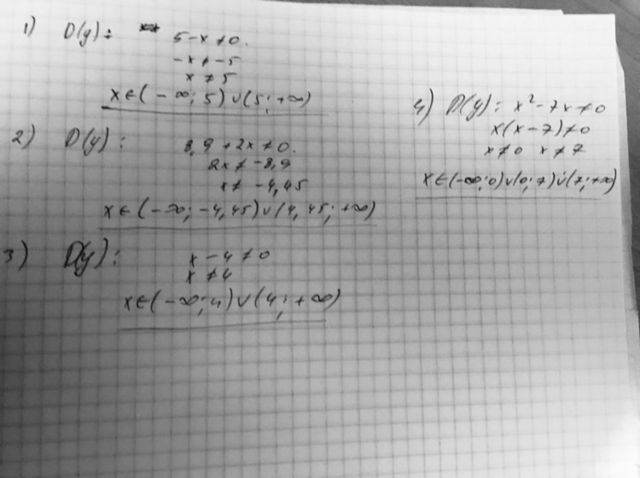 1) D(y): 5-x≠0.
-x≠-5
x≠5
x∈(-∞; 5)∪(5; +∞)
2) D(y): 8,9+2x≠0.
2x≠-8,9
x≠-4,45
x∈(-∞; -4,45)∪(4,45; +∞)
3) D(y): x-4≠0
x≠4
x∈(-∞; 4)∪(4; +∞)
4) D(y): x²-7x≠0
x(x-7)≠0
x≠0 x≠7
x∈(-∞; 0)∪(0; 7)∪(7; +∞)